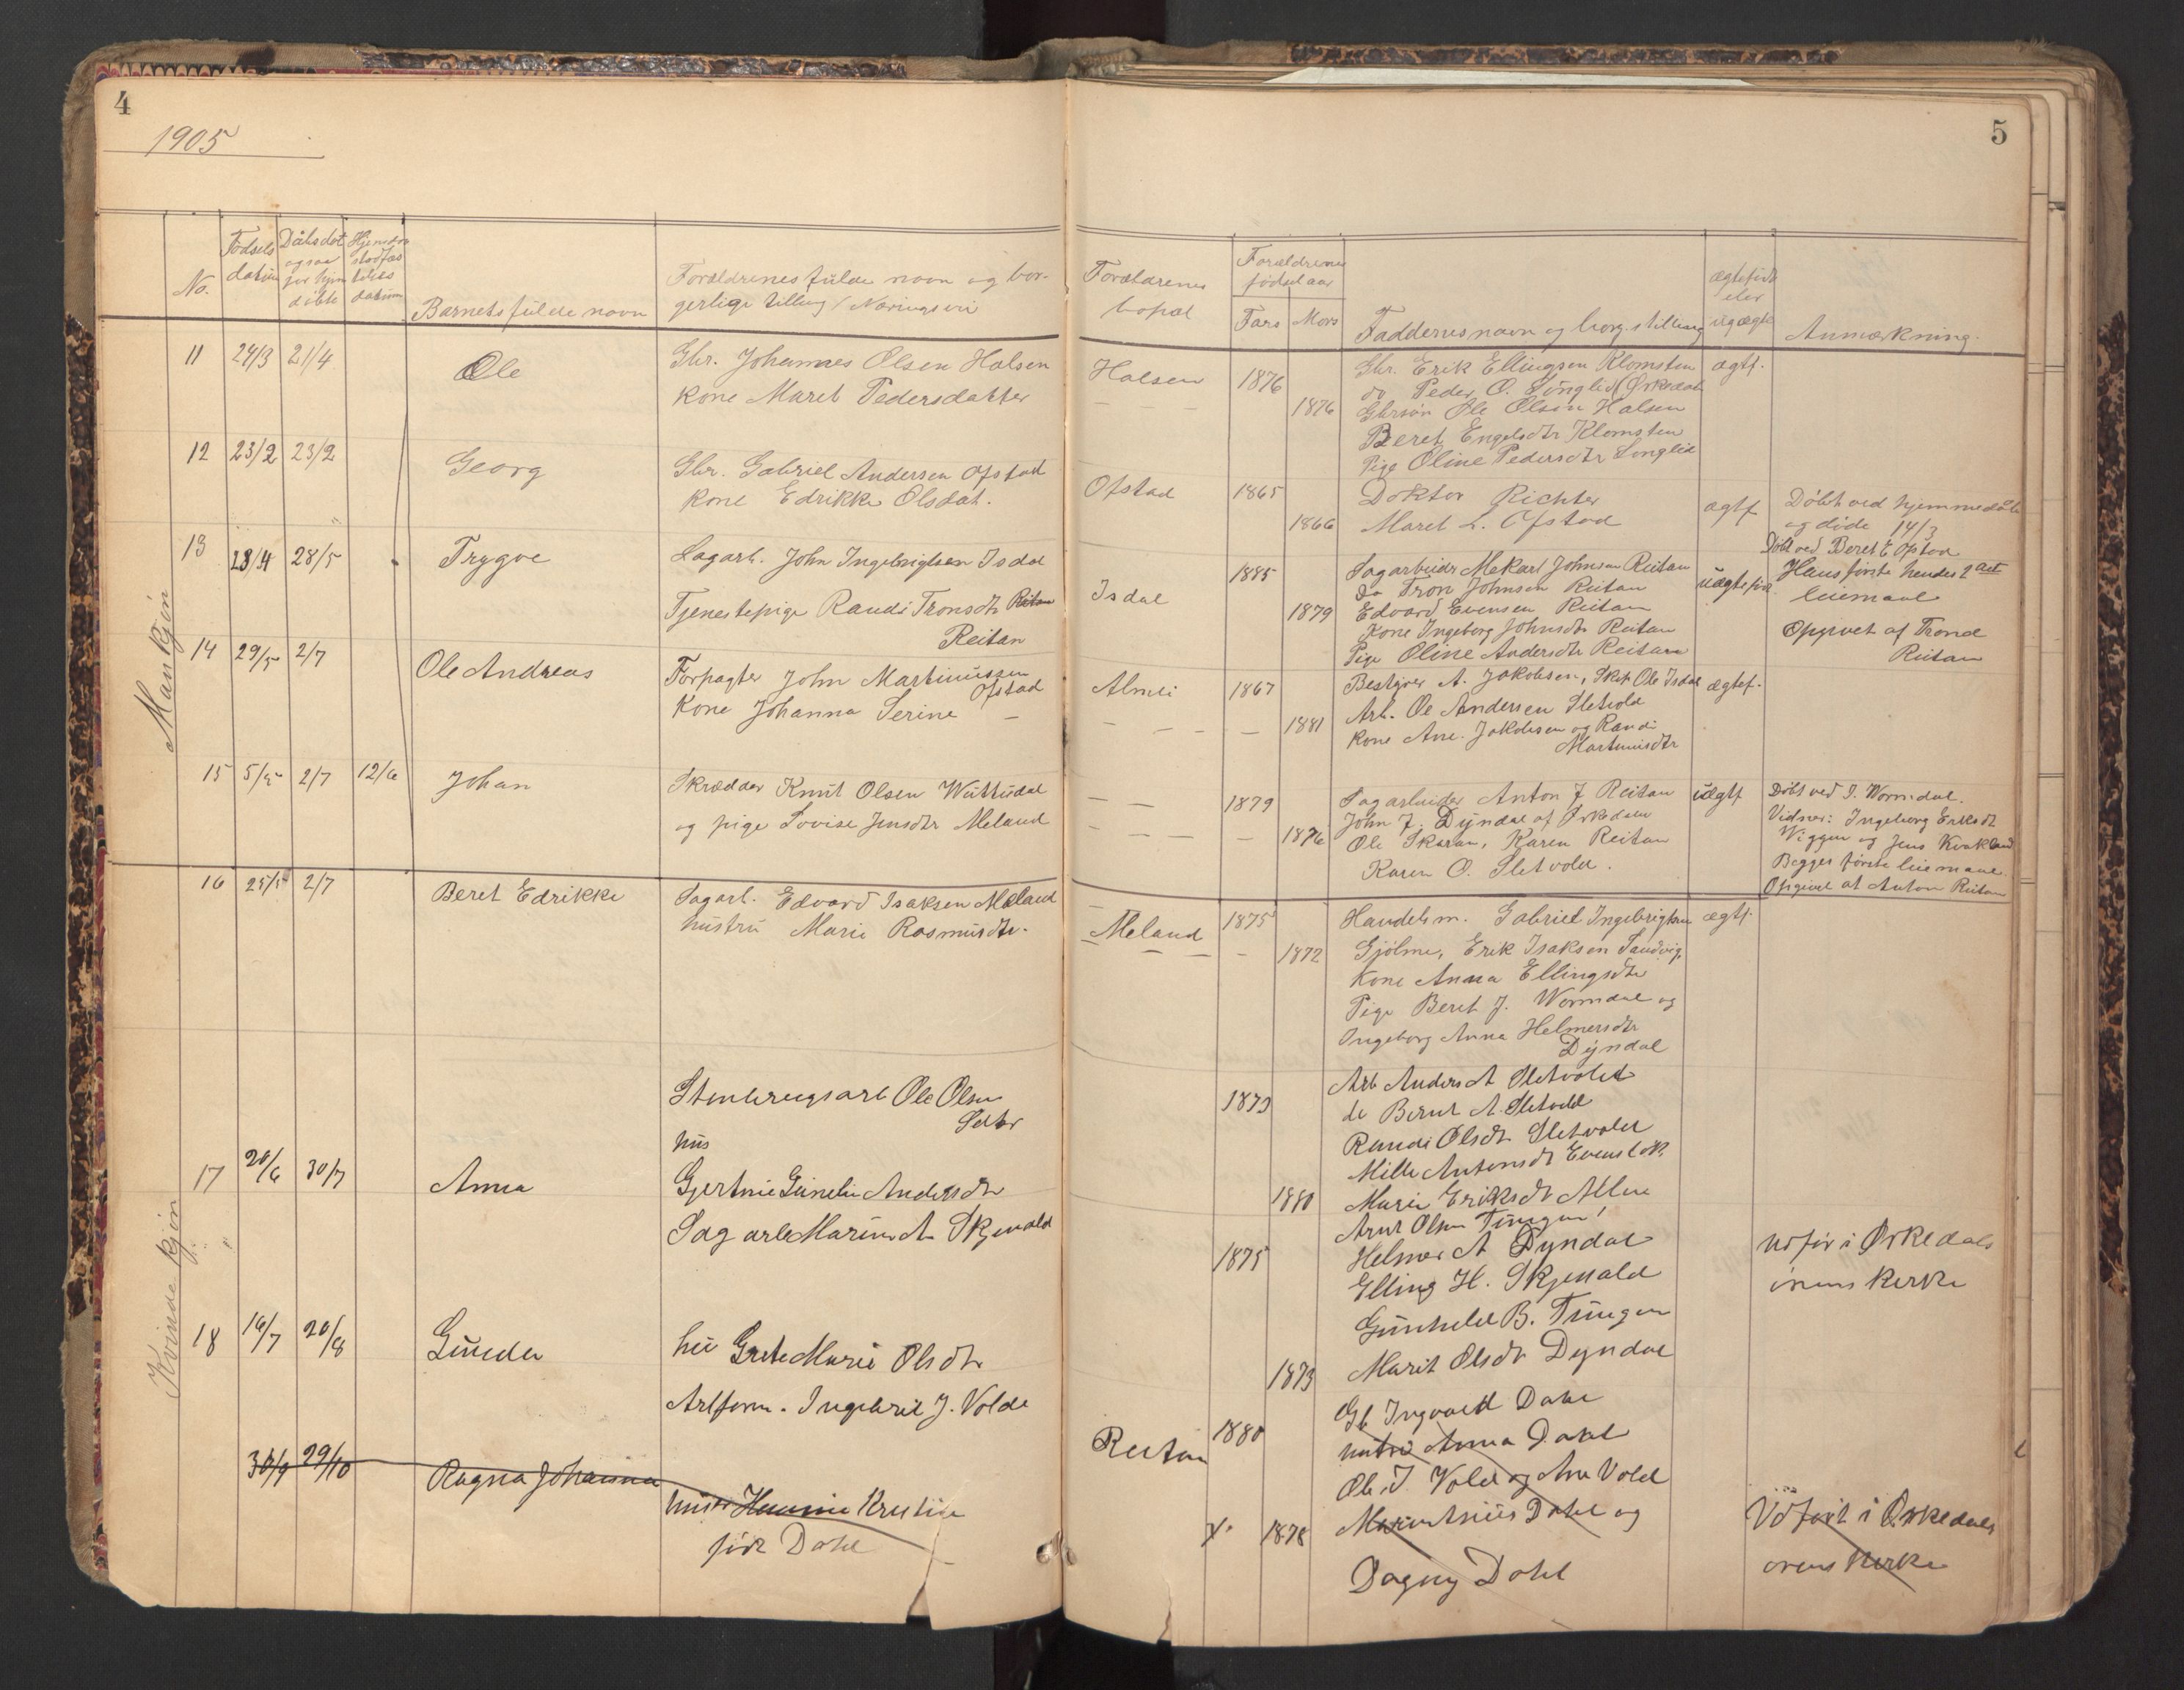 4
1905
No.
Fødsels datum
Dåbsdat ogsaa for hjem døbte
datum
Barnets fulde navn
Forældrenes fulde navn og bor-
gerlige stilling / Næringsvei
Mankjøn
11 24/3 21/4 Ole
Gbr. Johannes Olsen Halsen
Kone Maret Pedersdatter
12 23/2 23/2 Georg
Gbr. Gabriel Andersen Ofstad
Kone Edrikke Olsdat.
13 28/4 28/5 Trygve
Sagarb. John Ingebrigtsen Isdal
Tjenestepige Randi Tronsdtr Reitan
Reitan
14 29/5 2/7 Ole Andreas
Forpagter John Martinussen
Ofstad
Kone Johanna Serine —
15 5/5 2/7 12/6 Johan
Skrædder Knut Olsen Wuttudal
og pige Lovise Jensdtr Meland
Kvinde kjøn
16 25/5 2/7 Beret Edrikke
Sagarb. Edvard Isaksen Meland
hustru Marie Rasmusdtr.
Stenbrugsarb Ole Olsen
hus
17 20/6 30/7 Anna
Gjertine Gunelie Andersdtr
Sag arb Marius A Skjenald
18 16/7 20/8 Gunda
hu Grete Marie Olsdtr
Arbform. Ingebrit J. Volde
30/9 29/10 Ragna Johanna
hustr Hannie Kristine
født Dahl
5
Forældrenes
bopæl
Forældrenes
fødselaar
Fars Mors
Faddernes navn og borg. stilling
ægtefødt
eler
uægte
Anmærkning.
Halsen 1876
Gbr. Erik Ellingsen Klomsten ægtf.
do Peder O. Songlid (Orkedal
1876 Gbrsøn Ole Olsen Halsen
Beret Engelsdtr Klomsten
Pige Oline Pedersdtr Songlid
Ofstad 1865 Doktor Richter
1866 Maret L. Ofstad ægtf
Døbt ved hjemmedåb
og døde 14/3
Døbt ved Beret E Ofstad
1885 Sagarbeider Mekael Johnsen Reitan
Isdal do Tron Johnsen Reitan uægtefød
Hans første hendes 2det
leiemaal
1879 Edvard Evensen Reitan
Kone Ingeborg Johnsdtr Reitan
Pige Oline Andersdtr Reitan
Opgivet af Trond
Reitan
Almli 1867 Bestyrer A. Jakobsen, Skip Ole Isdal ægtef.
Arb. Ole Andersen Sletvold
1881 Kone Ane. Jakobsen og Randi
Martinusdtr
1879 Sagarbeider Anton J Reitan uægtf
John J. Dyndal af Orkedalen
1876 Ole Skaran, Karen Reitan
Karen O. Sletvold.
Døbt ved J. Wormdal.
Vidner: Ingeborg Eriksdt
Wiggen og Jens Kvakland
Begges første leiemaal.
Opgivet af Anton Reitan
Meland 1875 Handelsm. Gabriel Ingebrigtsen ægtf.
1872 Gjølme, Erik Isaksen Sandvig,
Kone Anna Ellingsdtr
Pige Beret J. Wormdal og
Ingeborg Anna Helmersdtr
Dyndal
Arb Anders A Sletvold
1873 do Bernt A. Sletvold
Randi Olsdtr Sletvold
Mille Antonsdt
1880 Marie Eriksdt
Arnt Olsen Tungen
1875 Helmer A Dyndal
Elling H. Skjenald
Gunhild B. Tungen
1873 Marit Olsdt Dyndal
Udfør i Orkedals
ørens Kirke
Reitan 1880 Gb Ingvald Dahl
hustru Anna Dahl
Ole J. Vold og Ane Vold
1878 Martinius Dahl og
Dagny Dahl
Udført i Orkedals
ørens Kirke